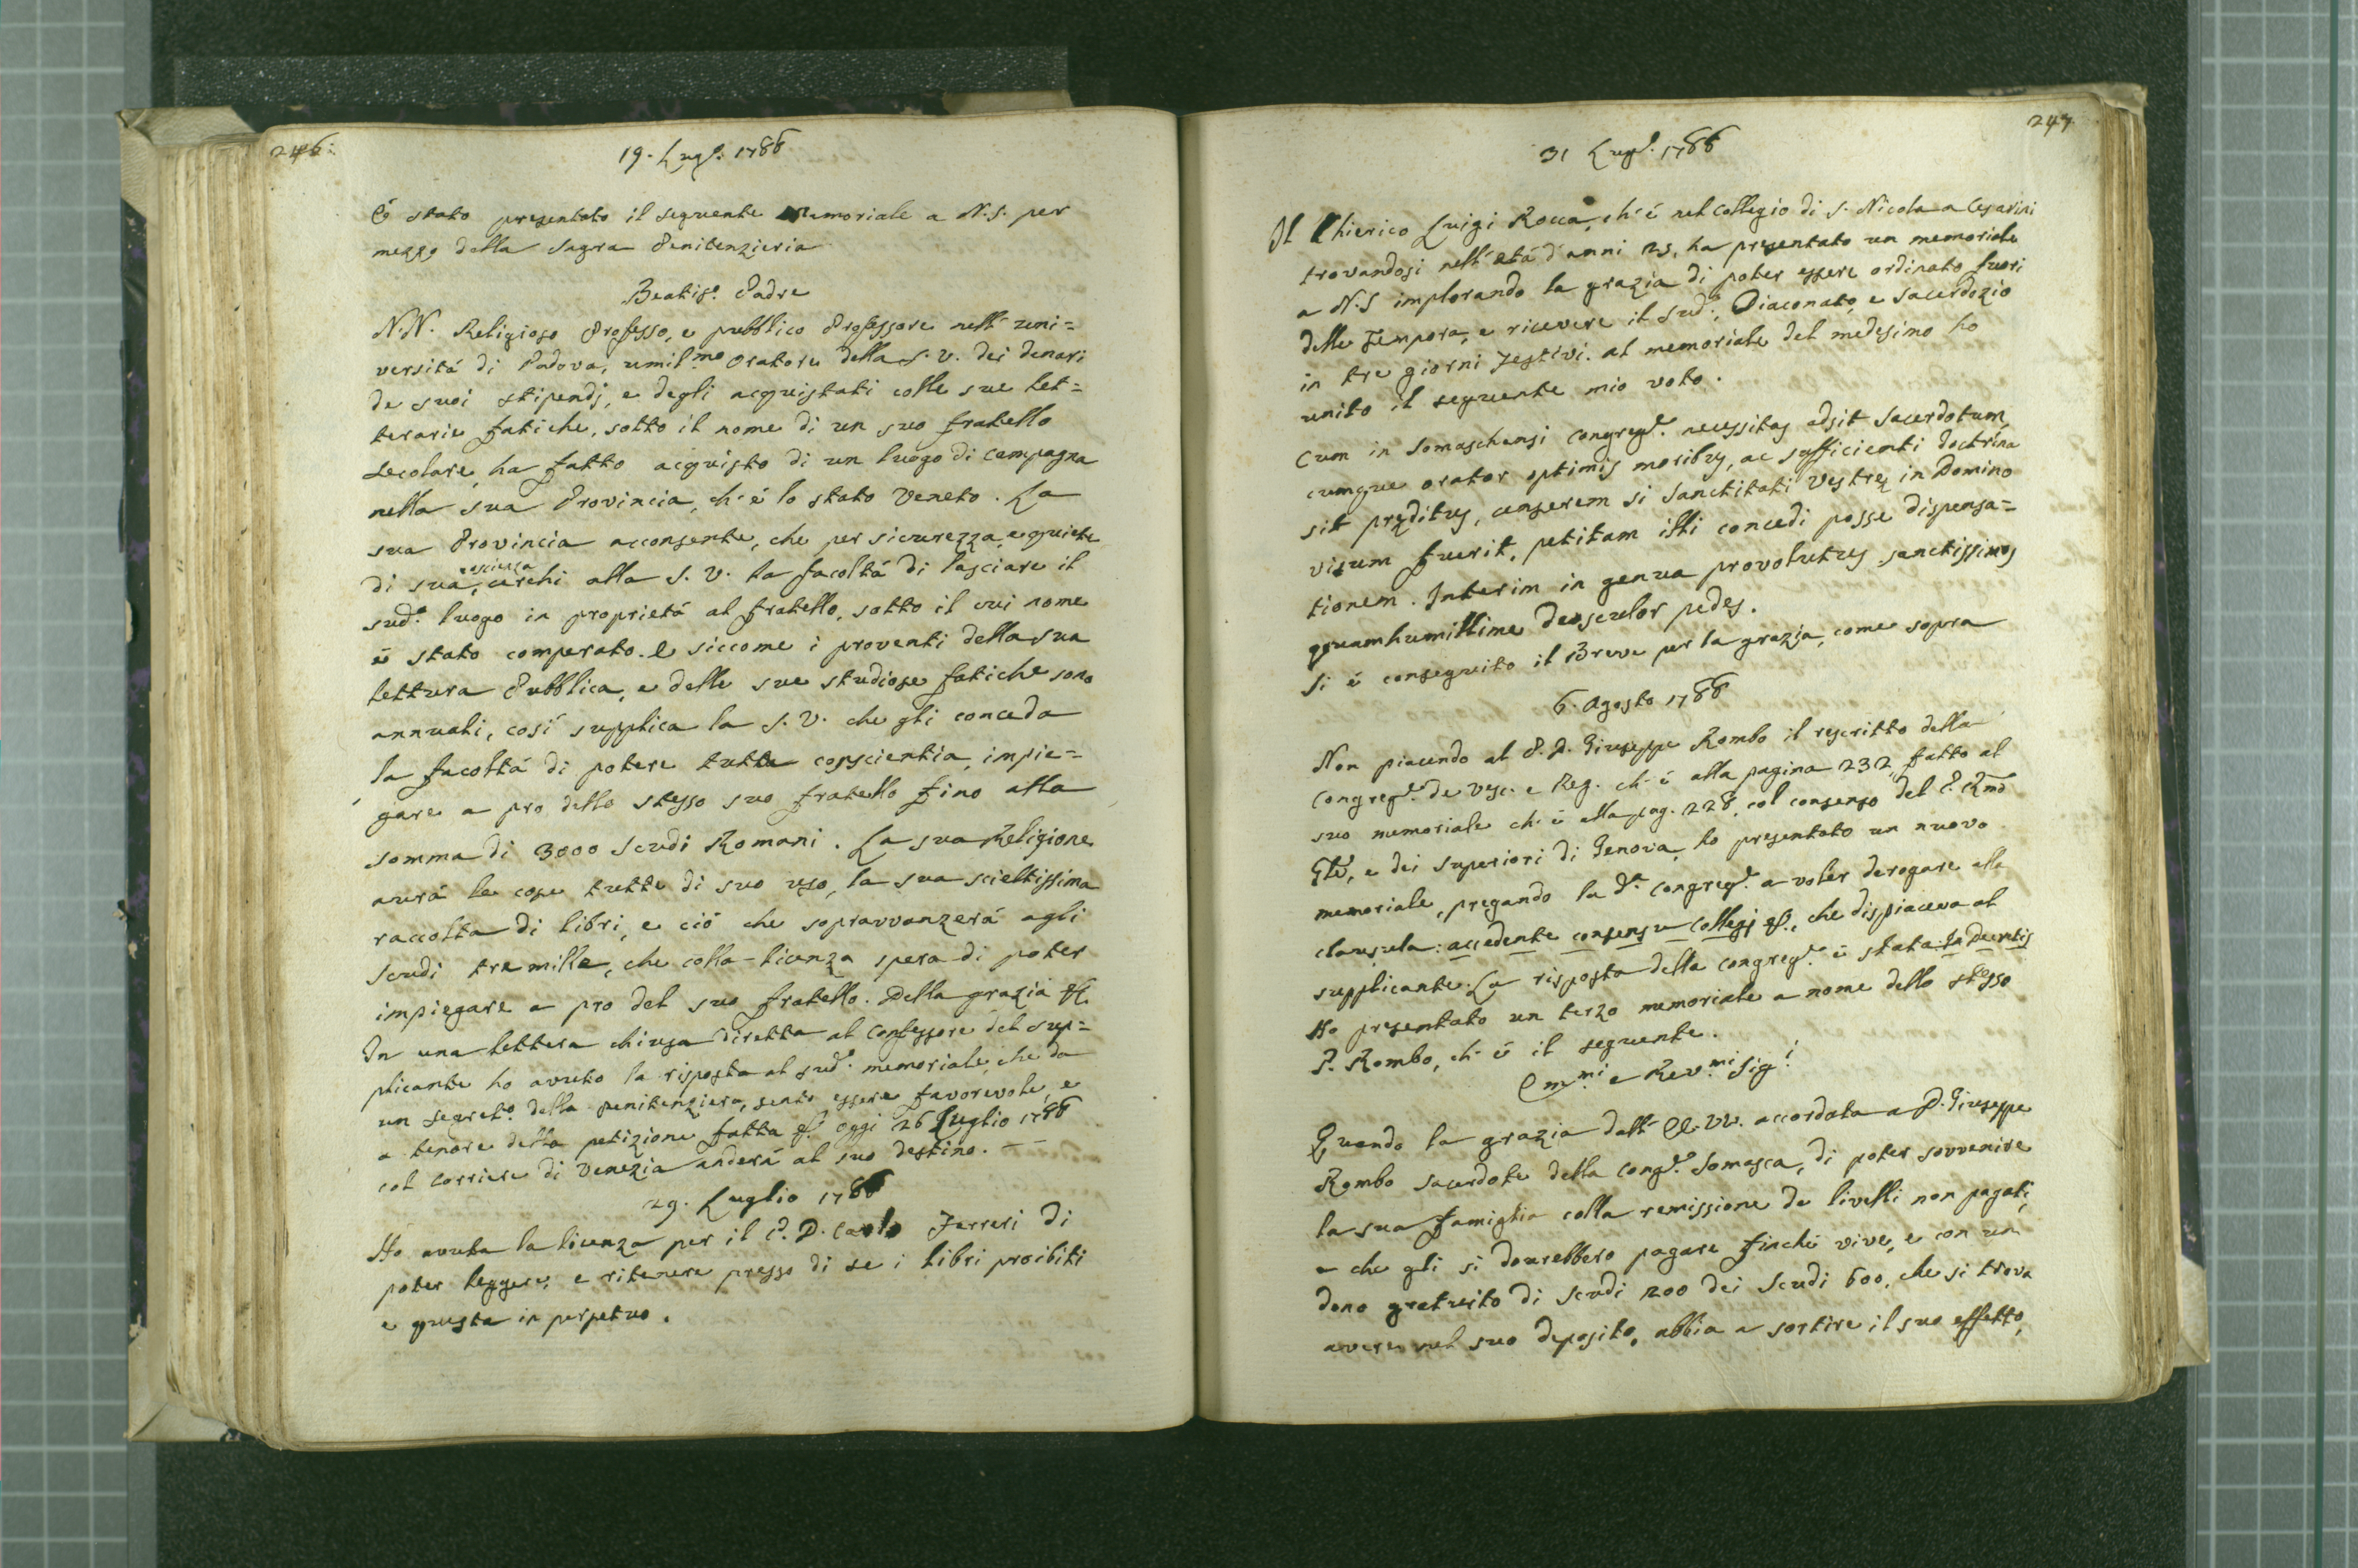 246:
19. Lug.º 1786
É stato presentato il seguente Memoriale a N. S. per
mezzo della Sagra Penitenzieria
Beatis.º Padre
N. N. Religioso Professo, e pubblico Professore nell' uni=
versitá di Padova, umil.mo Oratore della S. V. dei denari
de suoi stipendj, e degli acquistati colle sue let=
terarie fatiche, sotto il nome di un suo fratello
secolare, ha fatto acquisto di un luogo di campagna
nella sua Provincia, ch' é lo stato Veneto. La
sua Provincia acconsente, che per sicurezza, e quiete
di sua coscienza, cerchi alla S. V. la facoltá di lasciare il
sud.º luogo in proprietá al fratello, sotto il cui nome
é stato comperato. E siccome i proventi della sua
lettura Pubblica, e delle sue studiose fatiche sono
annuali, cosí supplica la S. V. che gli conceda
la facoltá di potere tutta conscientia, impie=
gare a pro dello stesso suo fratello fino alla
somma di 3000 Scudi Romani. La sua Religione
avrá le cose tutte di suo uso, la sua scieltissima
raccolta di libri, e ció che sopravvanzerá agli
Scudi tre mille, che colla licenza spera di poter
impiegare a pro del suo fratello. Della grazia &c.
In una lettera chiusa diretta al Confessore del sup=
plicante ho avuto la risposta al sud.º memoriale, che da
un segret.º della penitenziera, sento essere favorevole, e
a tenore della petizione fatta &c. Oggi 26 Luglio 1786
col Corriere di Venezia anderá al suo destino. — —
29. Luglio 1786
Ho avuta la licenza per il P. D. Carlo Ferreri di
poter leggere, e ritenere presso di se i libri proibiti
e questa in perpetuo.
247
31 Lug.º 1786
Il Chierico Luigi Rocca, ch' é nel Collegio di S. Nicola a Cesarini
trovandosi nell' etá d' anni 23, ha presentato un memoriale
a N. S implorando la grazia di poter essere ordinato fuori
delle Tempora, e ricevere il Sud.º, Diaconato, e Sacerdozio
in tre giorni festivi. al memoriale del medesimo ho
unito il seguente mio voto.
Cum in Somaschensi Congreg.e necessitas adsit Sacerdotum,
cumque orator optimis moribus, ac sufficienti doctrina
sit pręditus, censerem si Sanctitati Vestrę in Domino
visum fuerit, petitam illi concedi posse dispensa=
tionem. Interim in genua provolutus sanctissimos
quamhumillime deosculor pedes.
Si é conseguito il Breve per la grazia, come sopra
6. Agosto 1786
Non piacendo al P. D. Giuseppe Rombo il rescritto della
Congreg.e de Vesc. e Reg. ch' é alla pagina 232, fatto al
suo memoriale ch' é alla pag. 228, col consenso del P. Rmo
Gle, e dei superiori di Genova, ho presentato un nuovo
memoriale, pregando la d.a Congreg.e a voler derogare alla
clausula: accedente consensu Collegj &c., che dispiaceva al
supplicante. La risposta della Congreg.e é stata In Decretis
Ho presentato un terzo memoriale a nome dello stesso
P. Rombo, ch' é il seguente.
Em.mi e Rev.mi Sig.i
Quando la grazia dall' EE. VV. accordata a D. Giuseppe
Rombo sacerdote della Cong.e Somasca, di poter sovvenire
la sua famiglia colla remissione de livelli non pagati,
e che gli si dourebbero pagare finché vive, e con un
dono gratuito di Scudi 200 dei Scudi 600, che si trova
avere nel suo deposito, abbia a sortire il suo effetto,